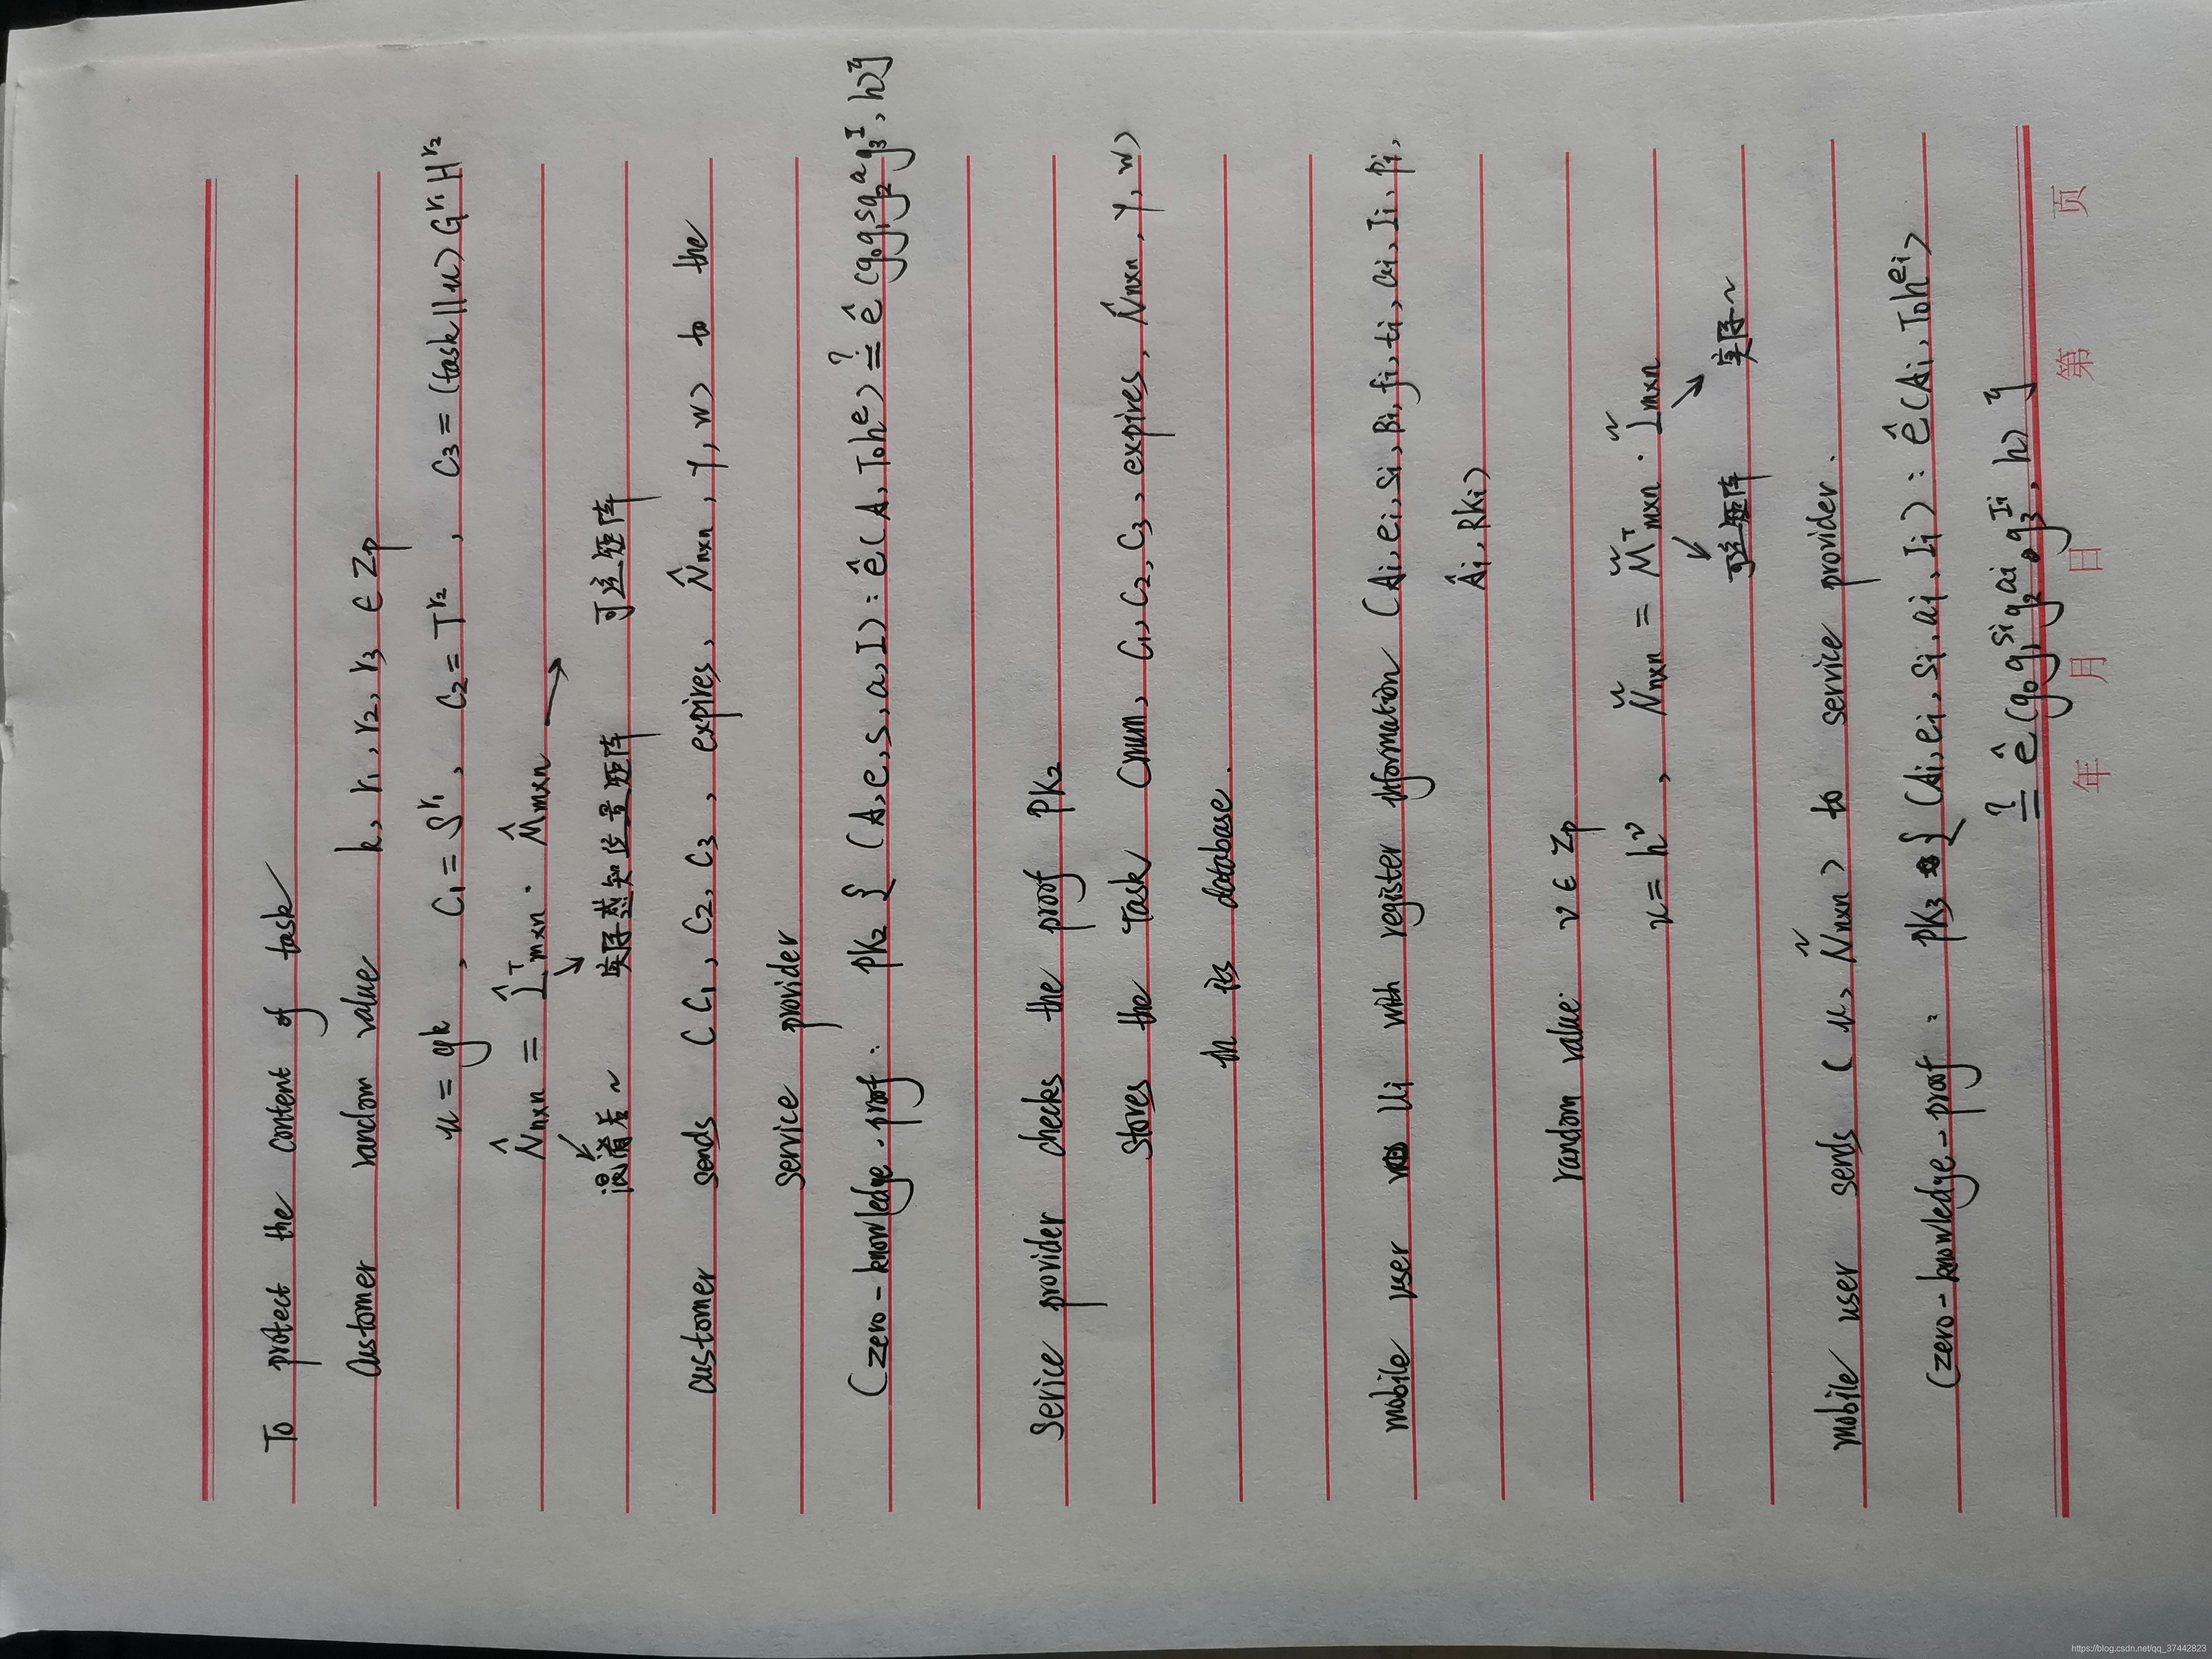 To protect the content of task
Customer random value k, r₁, r₂, r₃ ∈ Zp
u = gᵏ , C₁ = S^r₁ , C₂ = T^r₂ , C₃ = (task||u) G^r₁ H^r₂
N̂n×n = L̂ᵀm×n · M̂m×n
混淆后~ 实际感知位置矩阵 可逆矩阵
customer sends (C₁, C₂, C₃, expires, N̂n×n, γ, w) to the
service provider
(zero-knowledge-proof: PK₂ { (A, e, s, a, I) : ê(A, T₀h^e) ≟ ê(g₀g₁^s g₂^a g₃^I, h) }
Service provider checks the proof PK₂
stores the Task (num, C₁, C₂, C₃, expires, N̂n×n, γ, w)
in its database.
mobile user Ui with register information (Ai, ei, Si, Bi, fi, ti, ai, Ii, Pi,
Âi, RKi)
random value: v ∈ Zp
u = h^v , Ñn×n = M̃ᵀm×n · L̃m×n
可逆矩阵 实际~
mobile user sends (u, Ñn×n) to service provider.
(zero-knowledge-proof: PK₃ { (Ai, ei, si, ai, Ii) : ê(Ai, T₀h^ei)
≟ ê(g₀g₁^si g₂^ai g₃^Ii, h) }
年 月 日 第 页
https://blog.csdn.net/qq_37442823